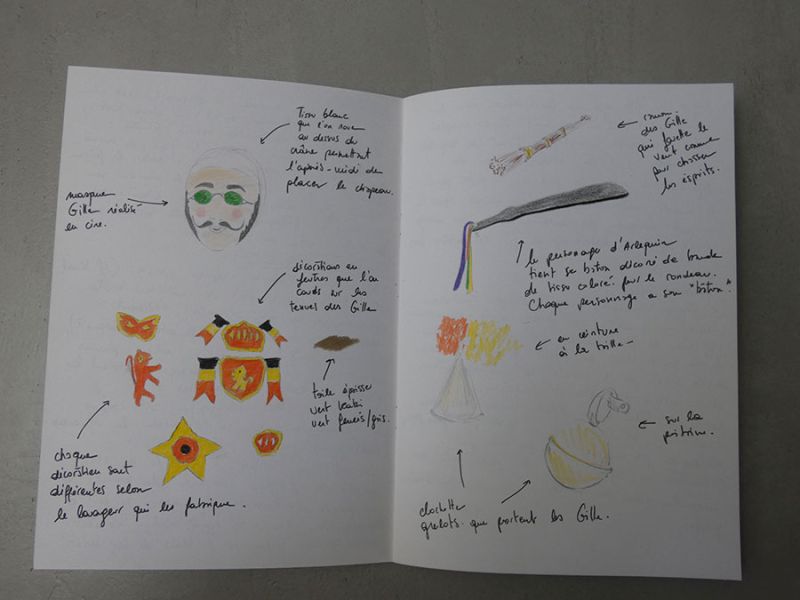 Tissu blanc
que l'on noue
au dessus du
crâne permettant
l'après-midi de
placer le chapeau.
masque
Gille réalisé
en cire.
décorations en
feutres que l'on
couds sur les
tenues des Gille
toile épaisse
vert kaki
vert foncés/gris.
chaque
décoration sont
différentes selon
le louageur qui les fabrique.
des Gille
qui fouette le
vent comme
pour chasser
les esprits.
le personnage d'Arlequin
tient se bâton décoré de bande
de tissu coloré pour le rondeau.
Chaque personnage a son "bâton".
en ceinture
à la taille
sur la
poitrine.
clochette
grelots que portent les Gille.